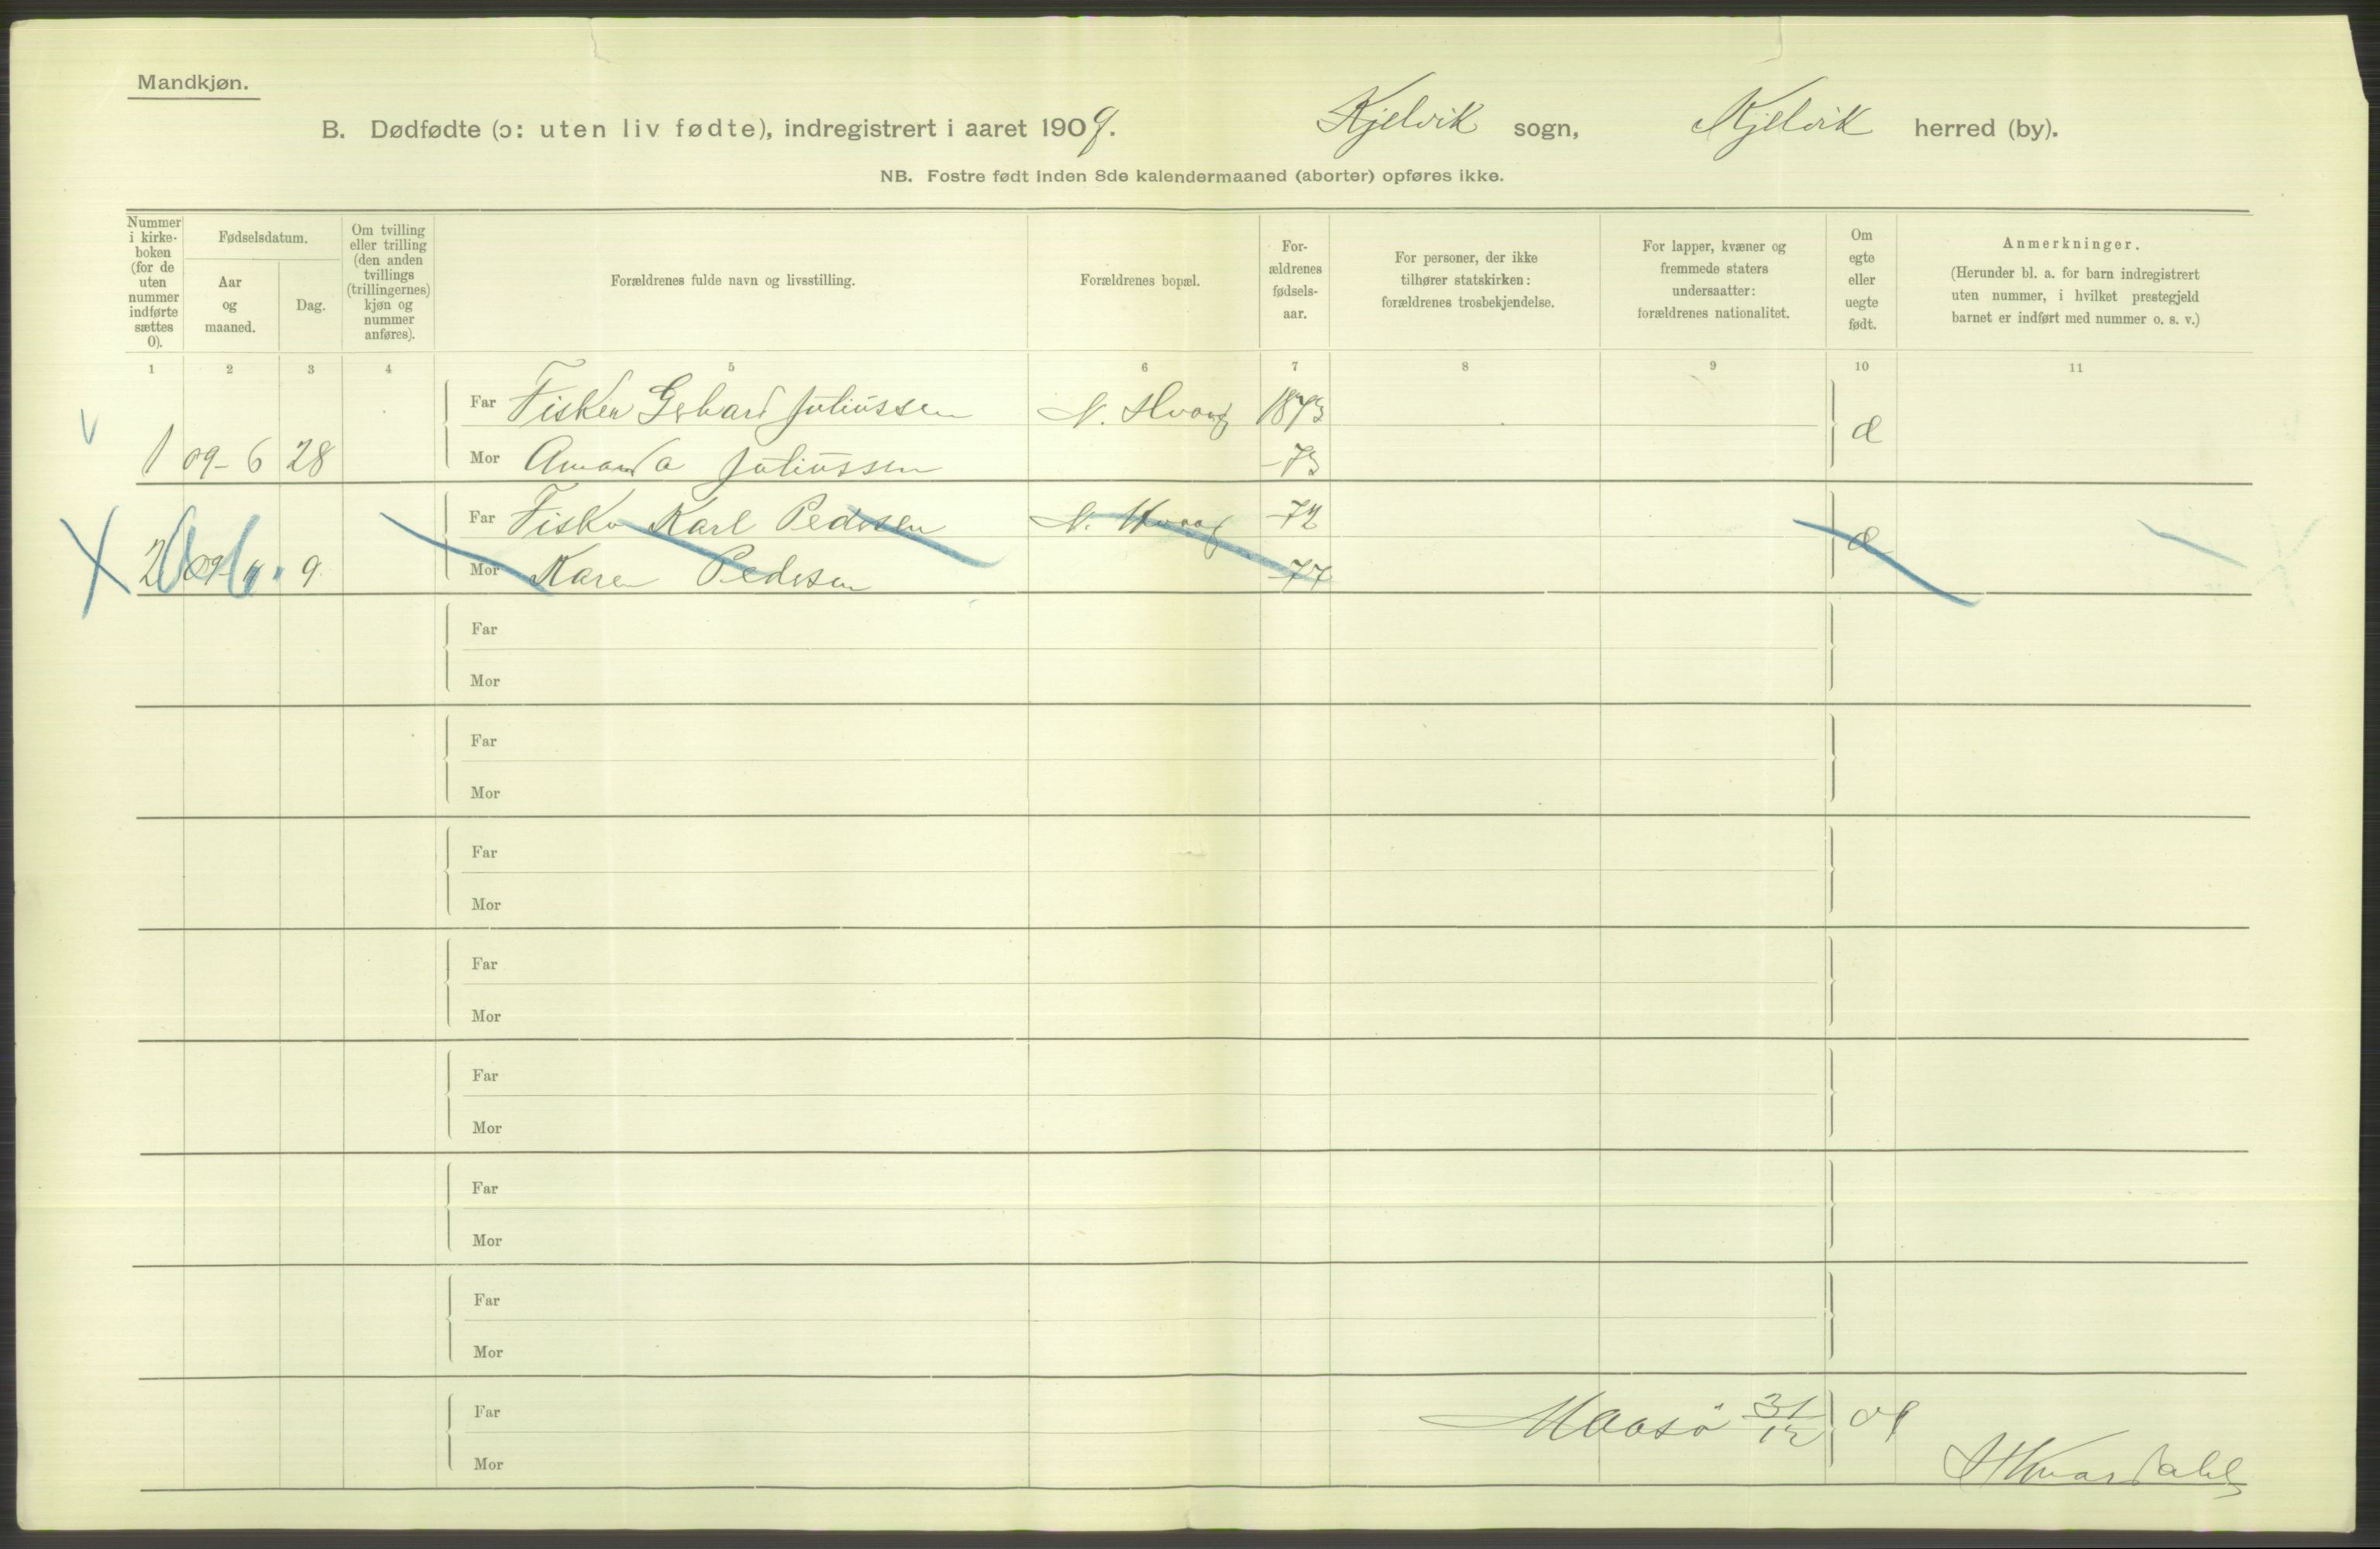 Mandkjøn.
B. Dødfødte (ɔ: uten liv fødte), indregistrert i aaret 1909. Kjelvik sogn, Kjelvik herred (by).
NB. Fostre født inden 8de kalendermaaned (aborter) opføres ikke.
Nummer i kirke-boken (for de uten nummer indførte sættes 0).
Fødselsdatum.
Aar og maaned.
Dag.
Om tvilling eller trilling (den anden tvillings (trillingernes) kjøn og nummer anføres).
Forældrenes fulde navn og livsstilling.
Forældrenes bopæl.
For-ældrenes fødsels-aar.
For personer, der ikke tilhører statskirken: forældrenes trosbekjendelse.
For lapper, kvæner og fremmede staters undersaatter: forældrenes nationalitet.
Om egte eller uegte født.
Anmerkninger.
(Herunder bl. a. for barn indregistrert uten nummer, i hvilket prestegjeld barnet er indført med nummer o. s. v.)
1 2 3 4 5 6 7 8 9 10 11
Far Fisker Gerhard Juliussen N. 1873
1 09-6 28 Mor Amanda Juliussen -73 æ
Far Fisker Karl Pedersen N. -72
2 09- 9 Mor Karen Pedersen -77 æ
Far
Mor
Far
Mor
Far
Mor
Far
Mor
Far
Mor
Far
Mor
Far
Mor
Far Maasö 31/12 09
Mor